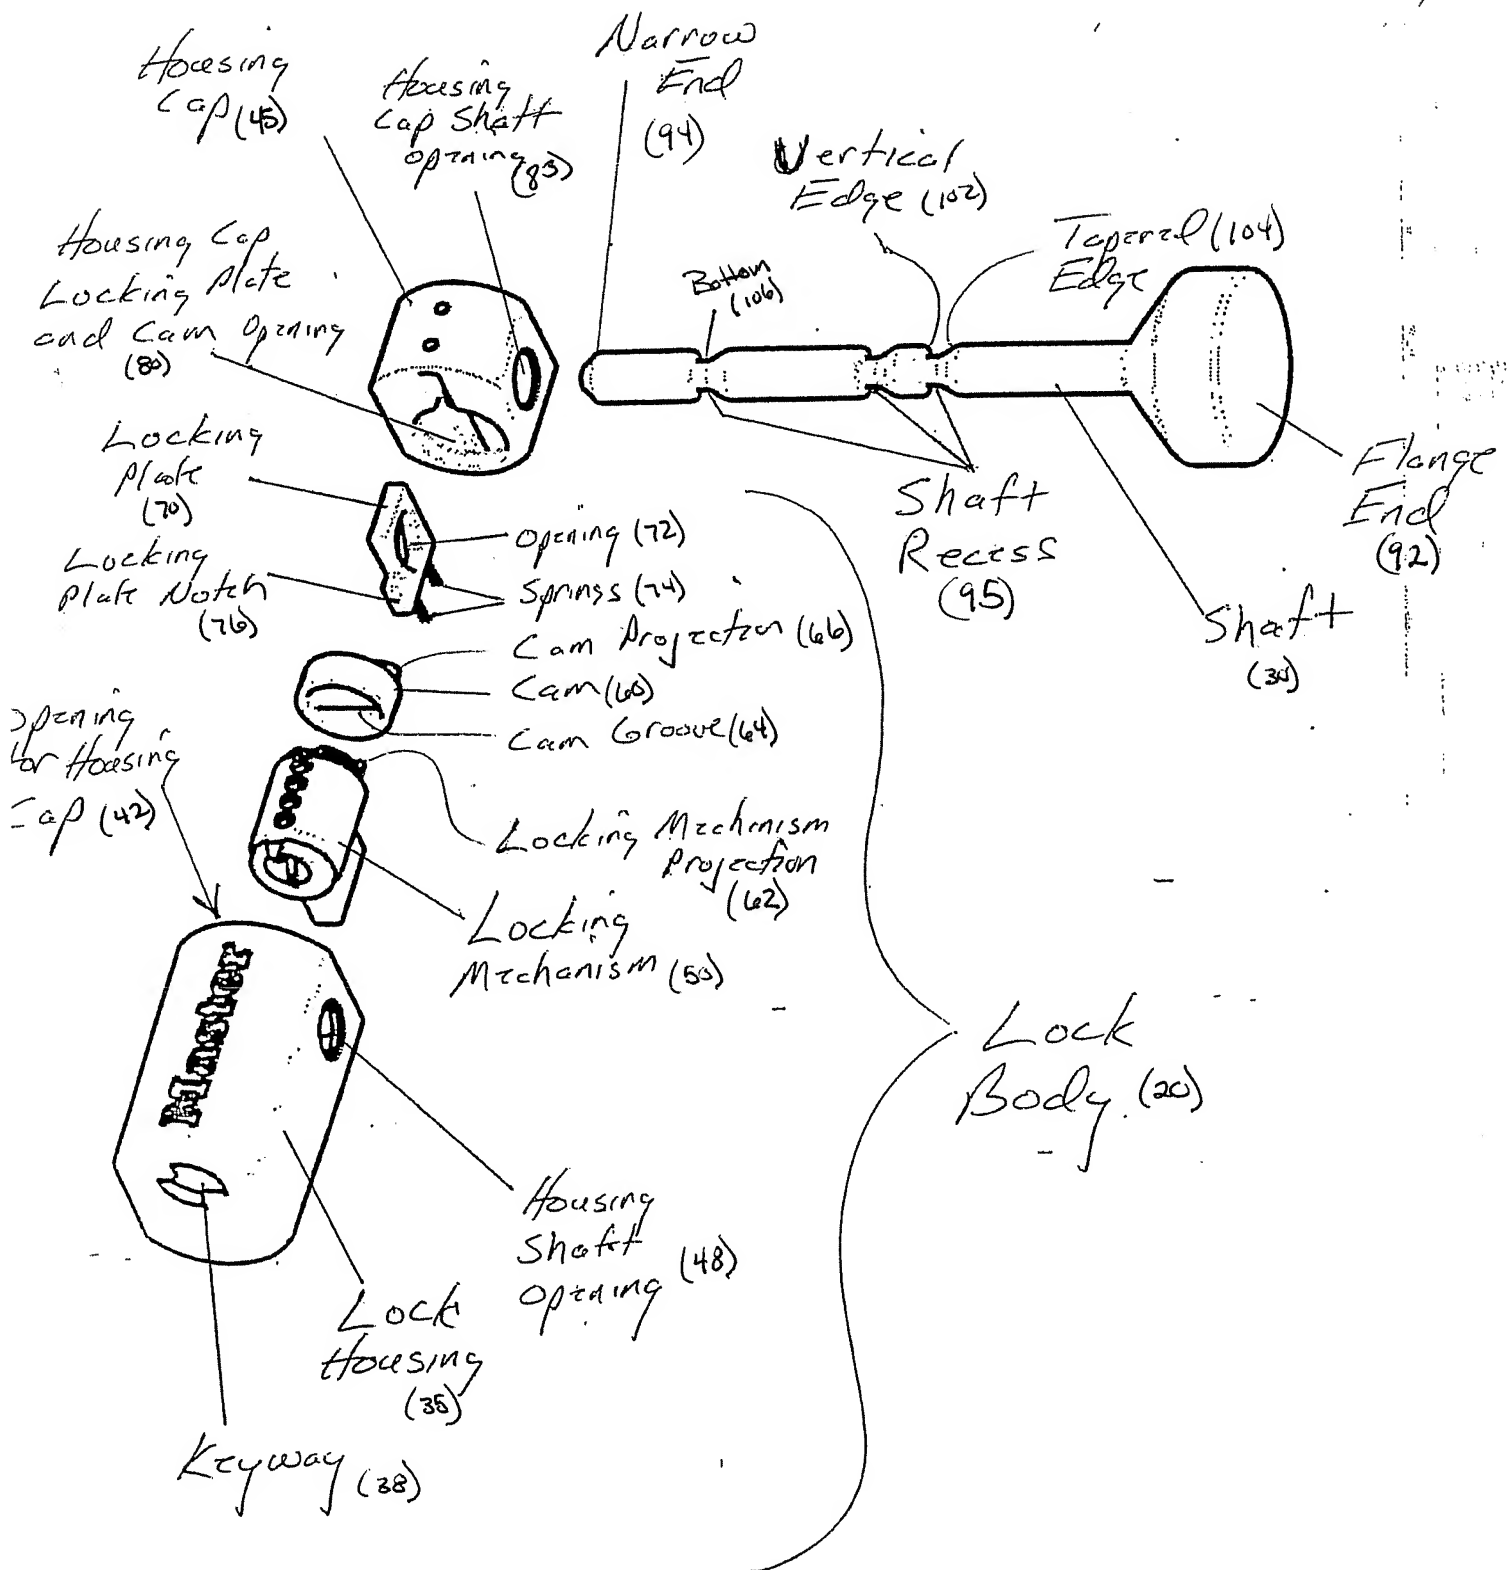 Housing
Cap (45)
Housing
Cap Shaft
Opening
(83)
Narrow
End
(94)
Vertical
Edge (102)
Tapered (104)
Edge
Housing Cap
Locking Plate
and Cam Opening
(80)
Bottom
(106)
Locking
Plate
(70)
Locking
Plate Notch
(76)
Opening (72)
Springs (74)
Cam Projection (66)
Cam (60)
Cam Groove (64)
Shaft
Recess
(95)
Flange
End
(92)
Shaft
(30)
Opening
for Housing
Cap (42)
Locking Mechanism
Projection
(62)
Locking
Mechanism (50)
Master
Lock
Body (20)
Housing
Shaft
Opening (48)
Lock
Housing
(35)
Keyway (38)